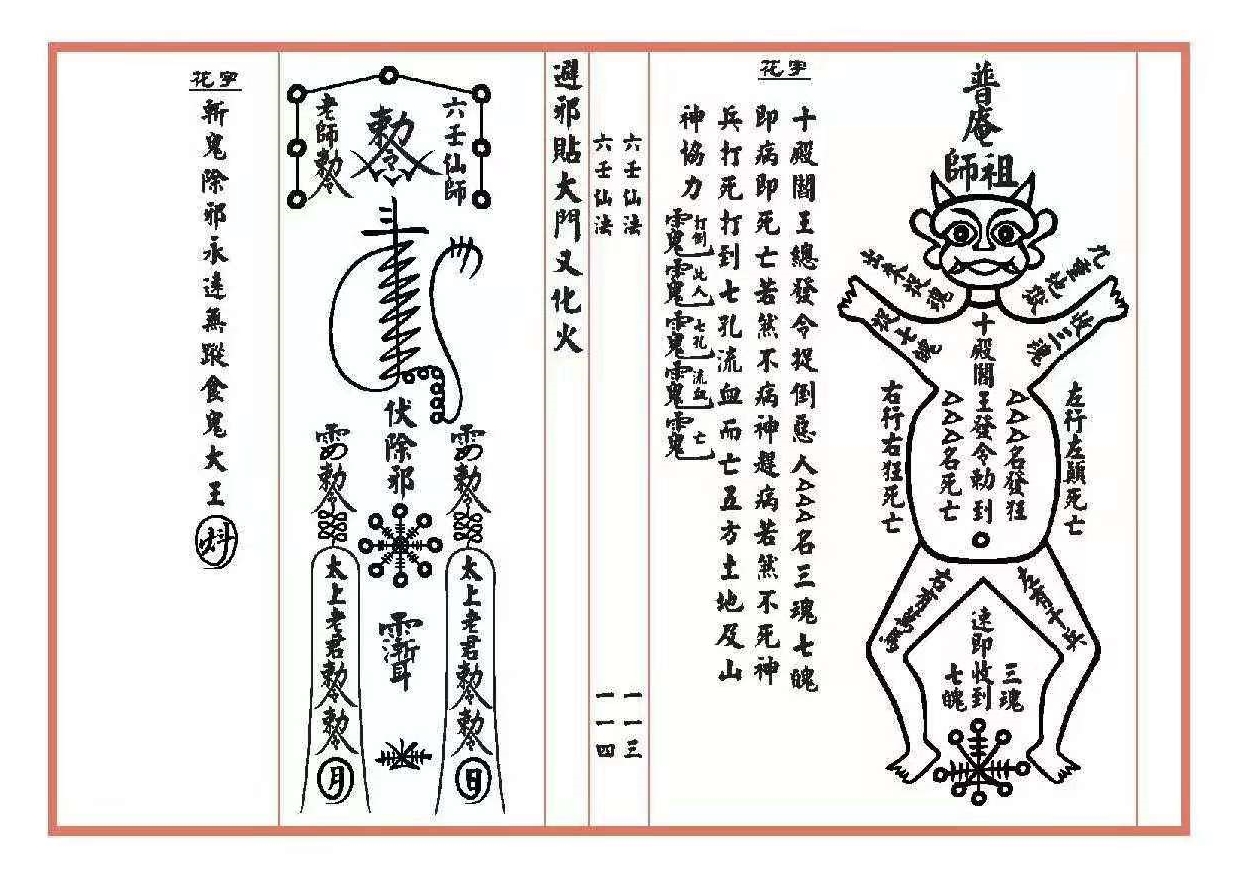 普庵
祖師
十殿閻王發令勅到
△△△名發狂
△△△名死亡
左行左顛死亡
右行右狂死亡
收三魂
速即收到
三魂
七魄
花字
十殿閻王總發令捉倒惡人△△△名三魂七魄
即病即死亡若然不病神趕病若然不死神
兵打死打到七孔流血而亡五方土地及山
神協力
打倒
此人
七孔
流血
亡
六壬仙法
一一三
六壬仙法
一一四
避邪貼大門又化火
六壬仙師
勅令
老師勅令
伏除邪
勅令
太上老君勅令勅令
日
勅令
太上老君勅令勅令
月
花字
斬鬼除邪永遠無蹤食鬼大王